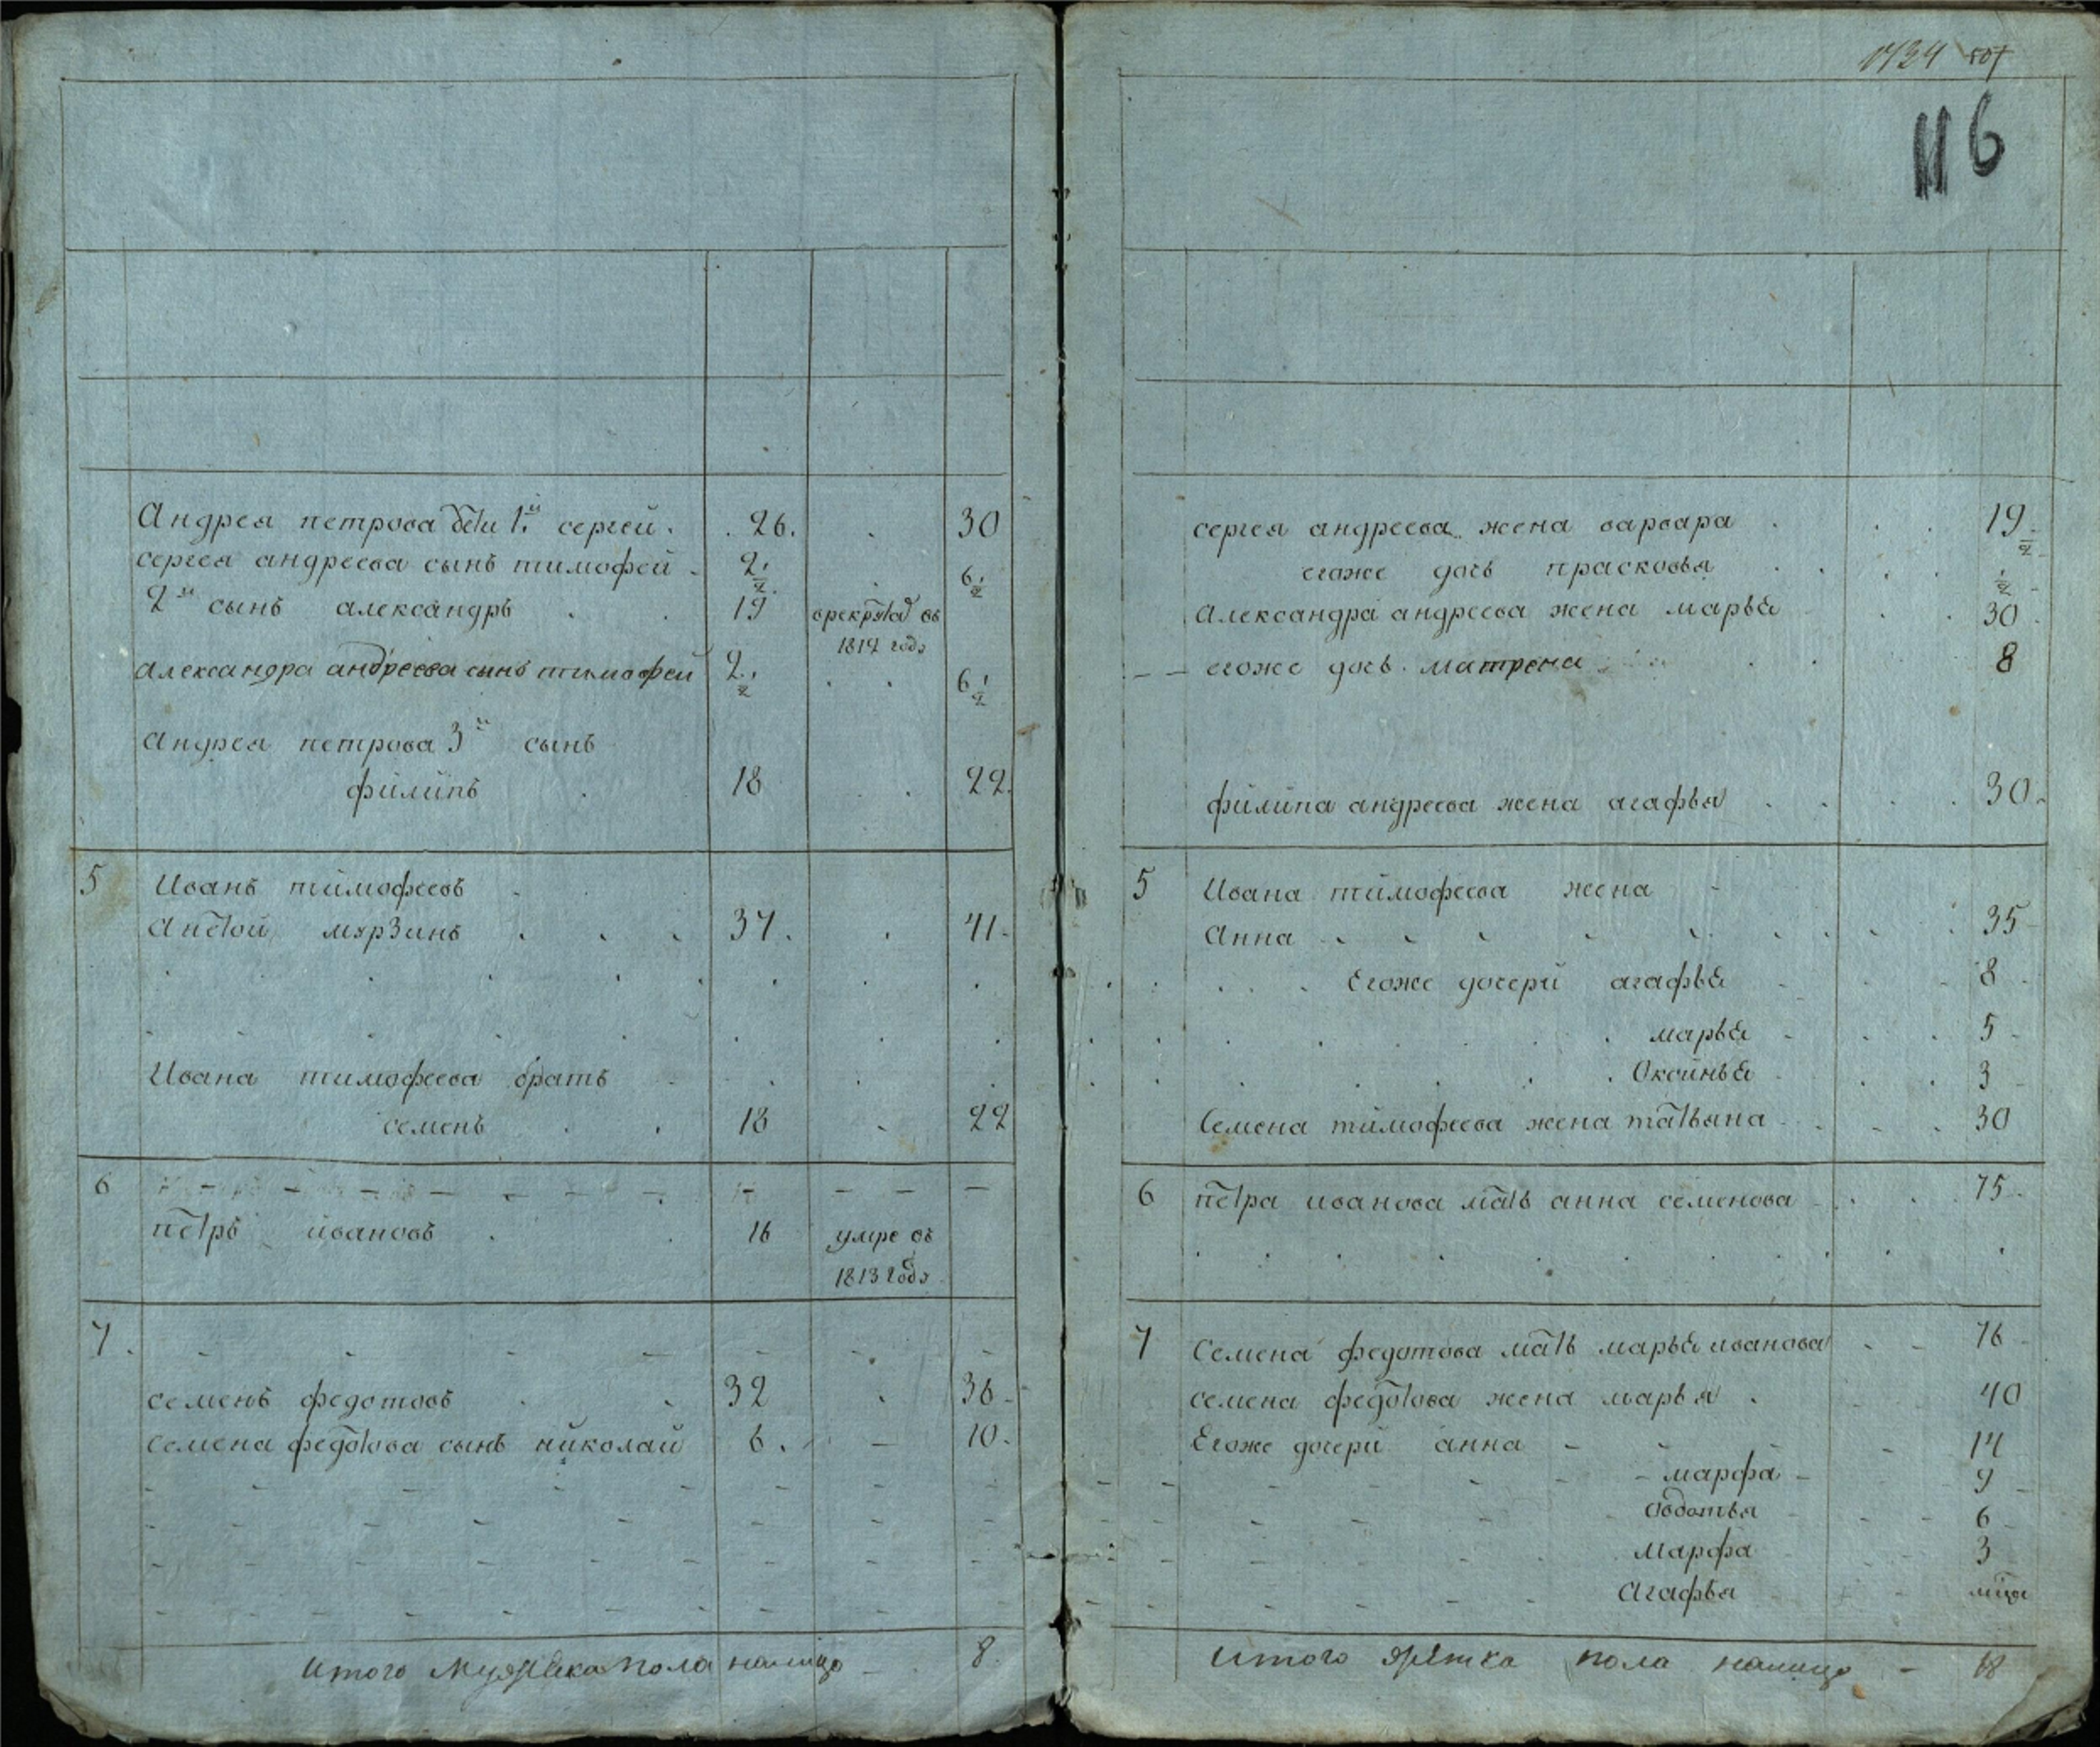 Андрея петрова дети 1й сергей . 26 . 30
сергея андреева сынъ тимофей 2 1/2 . 6 1/2
2й сынъ александръ . 19 врекруты въ
1812 году
александра андреева сынъ тимофей 2 1/2 . . 6 1/2
андрея петрова 3й сынъ
филипъ . 18 . . 22
5 Иванъ тимофеевъ
Мурзинъ . . . 37 . 41
Ивана тимофеева братъ
семенъ . . 18 . 22
6
петръ ивановъ . . 16 умре въ
1813 году
7
семенъ федотовъ . . 32 . 36
семена федотова сынъ николай 6 . – 10
Итого Мужеска пола налицо – 8
116
сергея андреева жена варвара . . . 19
егоже дочь прасковья . . . 1/2
александра андреева жена марья . . 30
егоже дочь матрена . . 8
филипа андреева жена агафья . . . 30
5 Ивана тимофеева жена
Анна . . . . . . 35
Егоже дочери агафья . . 8
марья . . 5
Оксинья . . 3
Семена тимофеева жена татьяна . . . 30
6 петра иванова мать анна семенова . . 75
7 Семена федотова мать марья иванова . – 76
семена федотова жена марья . 40
Егоже дочери анна – 14
марфа – 9
овдотья – 6
Марфа 3
Агафья
Итого женска пола налицо – 18